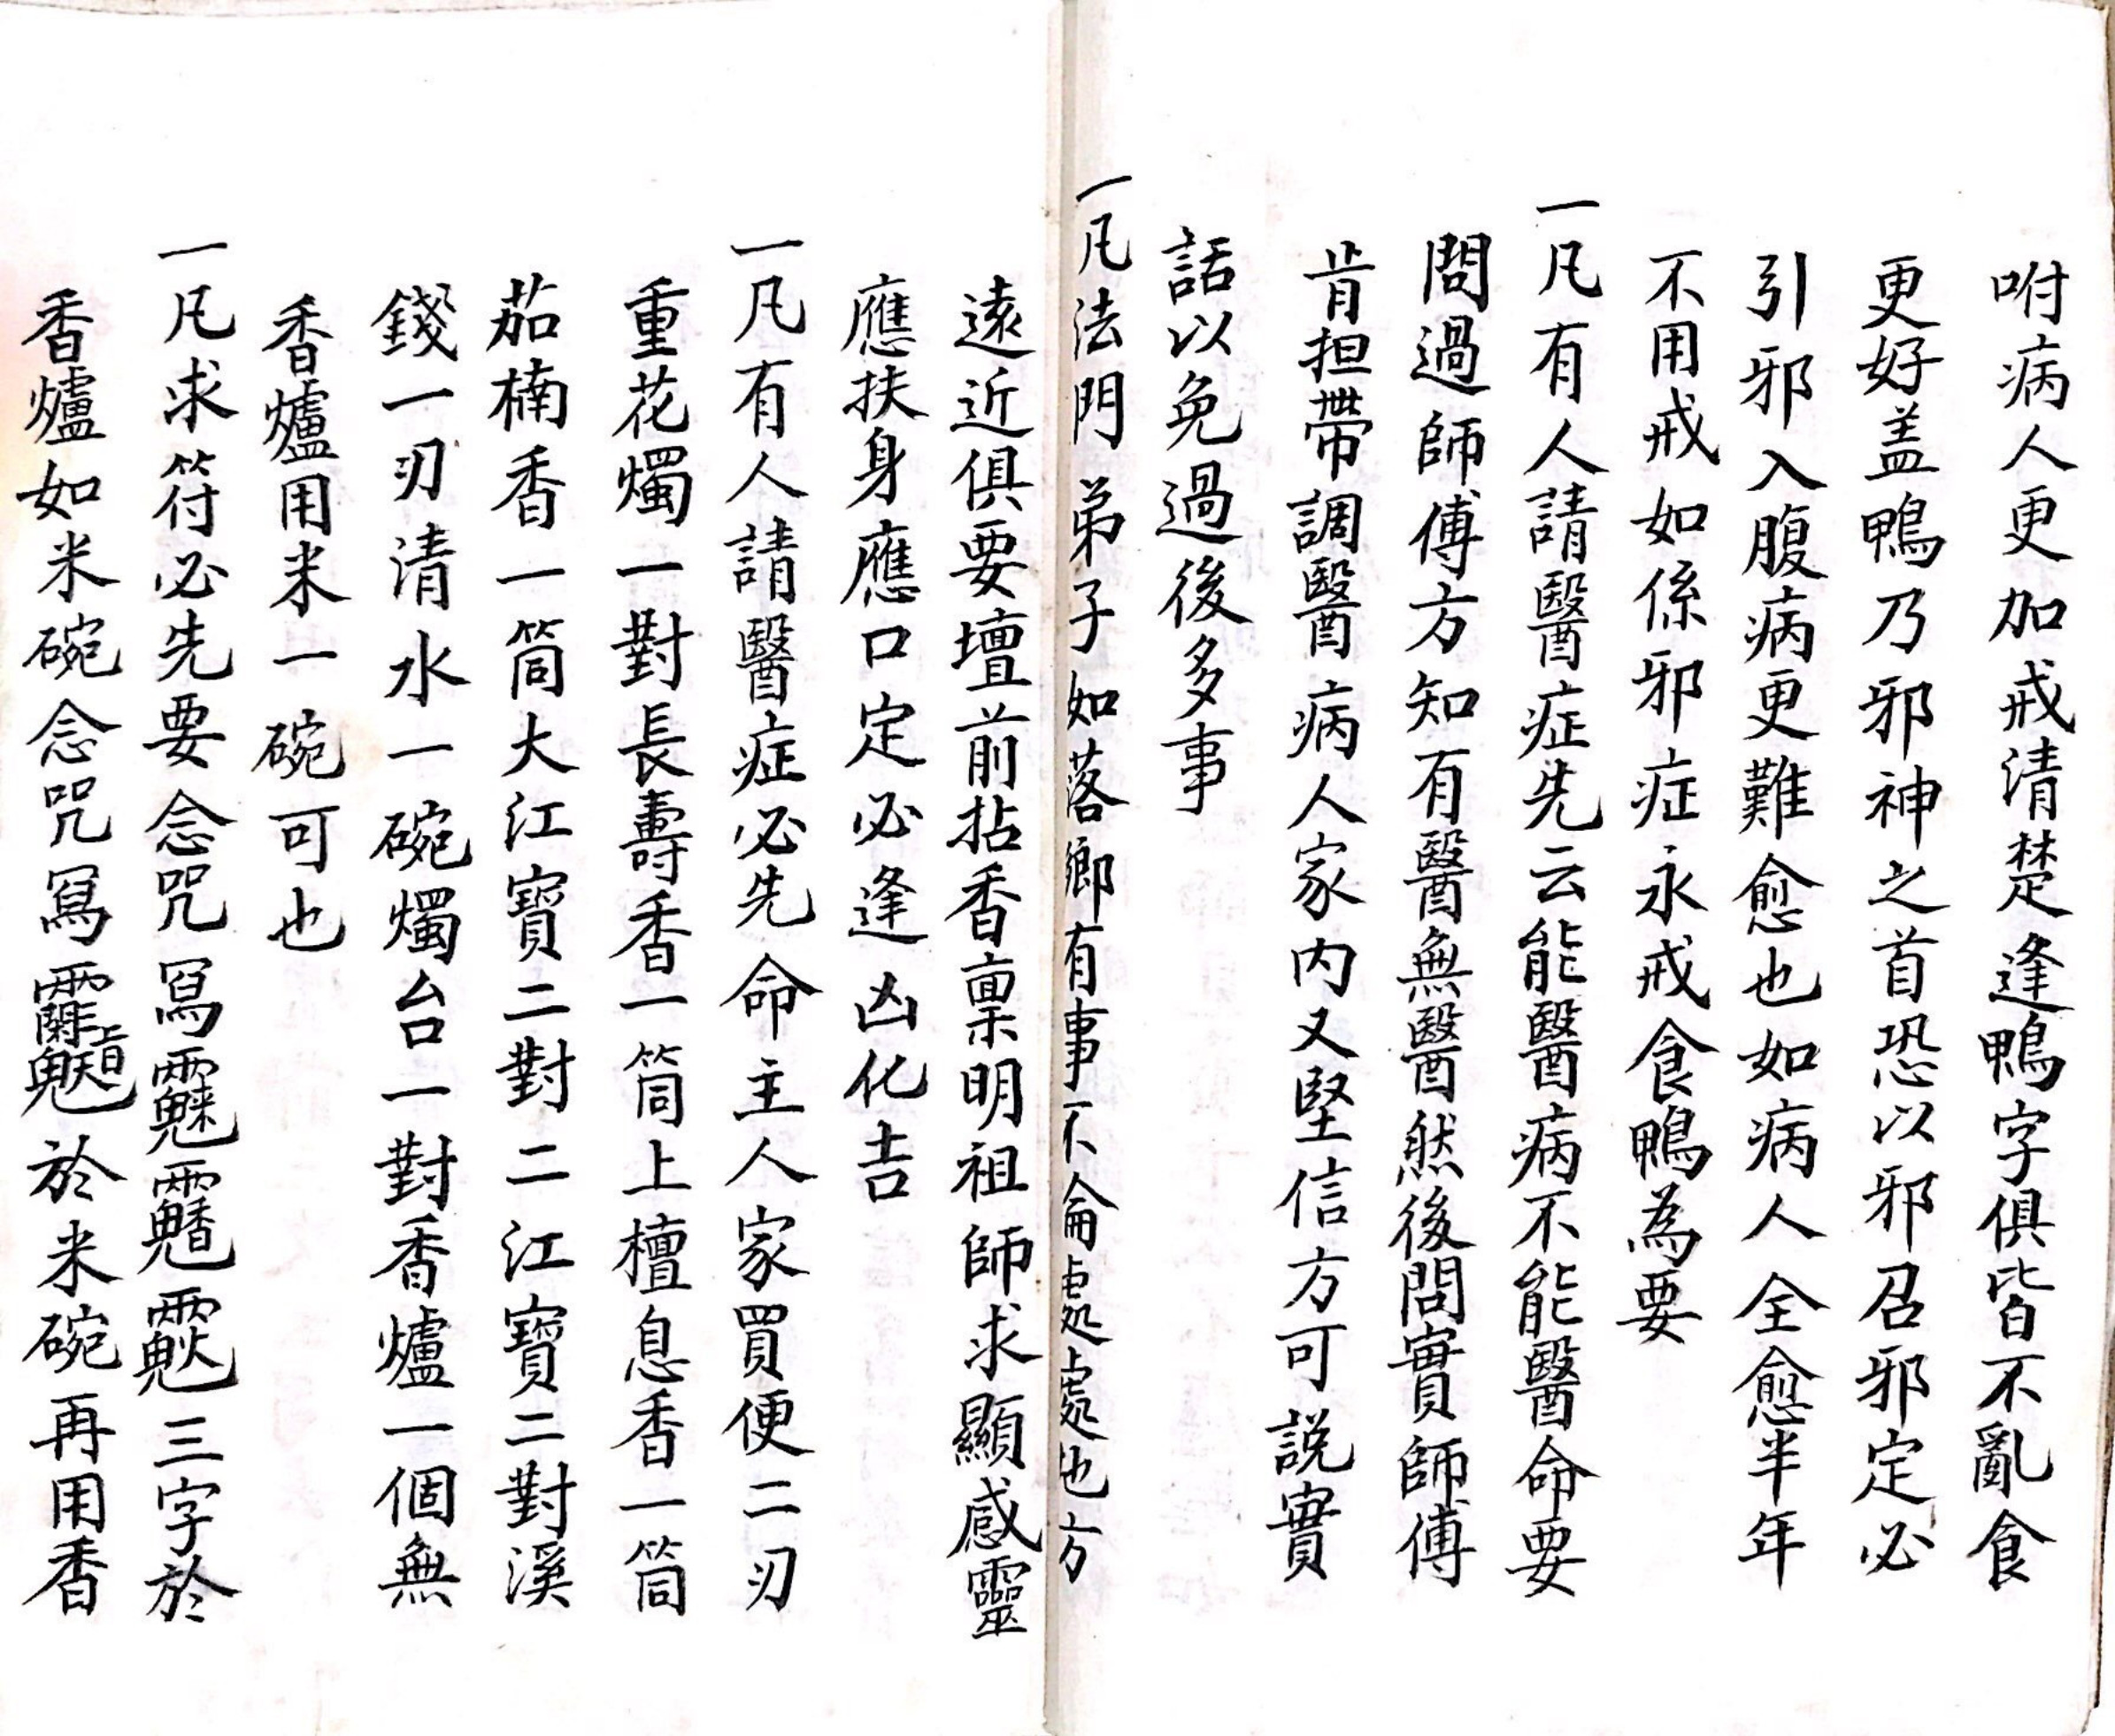 咐病人更加戒清楚逢鴨字俱皆不亂食
更好盖鴨乃邪神之首恐以邪召邪定必
引邪入腹病更難愈也如病人全愈半年
不用戒如係邪症永戒食鴨為要
一凡有人請醫症先云能醫病不能醫命要
問過師傅方知有醫無醫然後問實師傅
肯担帶調醫病人家內又堅信方可說實
話以免過後多事
一凡法門弟子如落鄉有事不侖處處地方
遠近俱要壇前拈香稟明祖師求顯感靈
應扶身應口定必逢凶化吉
一凡有人請醫症必先命主人家買便二刃
重花燭一對長壽香一筒上檀息香一筒
茄楠香一筒大江寶二對二江寶二對溪
錢一刃清水一碗燭台一對香爐一個無
香爐用米一碗可也
一凡求符必先要念咒冩三字於
香爐如米碗念咒冩於米碗再用香